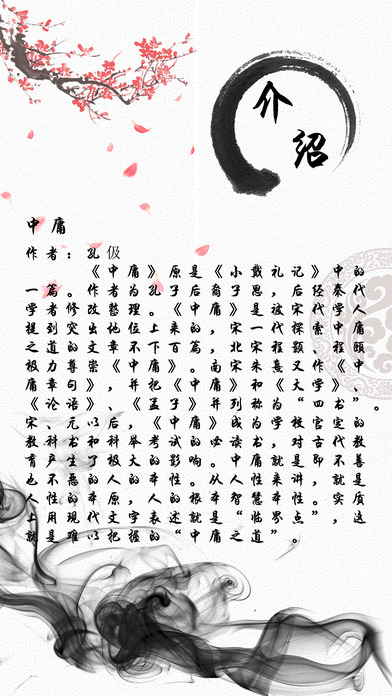 介绍
中庸
作者：孔伋
《中庸》原是《小戴礼记》中的
一篇。作者为孔子后裔子思，后经秦代
学者修改整理。《中庸》，是被宋代学人
提到突出地位上来的，宋一代探索中庸
之道的文章不下百篇，北宋程颢、程颐
极力尊崇《中庸》。南宋朱熹又作《中
庸章句》，并把《中庸》和《大学》、
《论语》、《孟子》并列称为“四书”。
宋、元以后，《中庸》成为学校官定的
教科书和科举考试的必读书，对古代教
育产生了极大的影响。中庸就是即不善
也不恶的人的本性。从人性来讲，就是
人性的本原，人的根本智慧本性。实质
上用现代文表述就是“临界点”，这
就是难以把握的“中庸之道”。